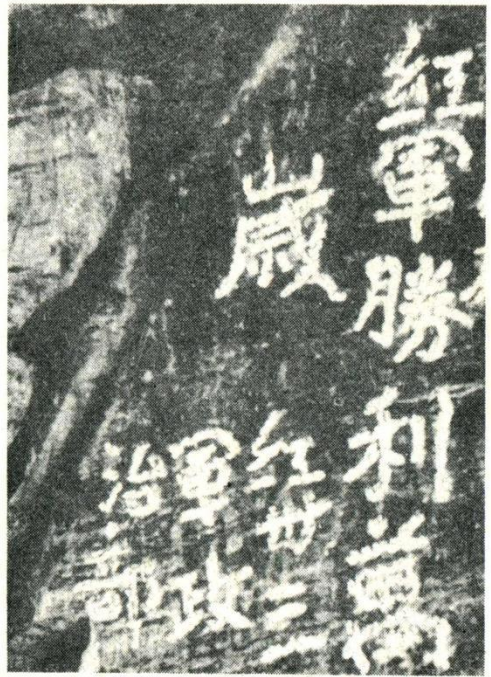 紅軍勝利萬
歲
紅卅三
軍政
治部